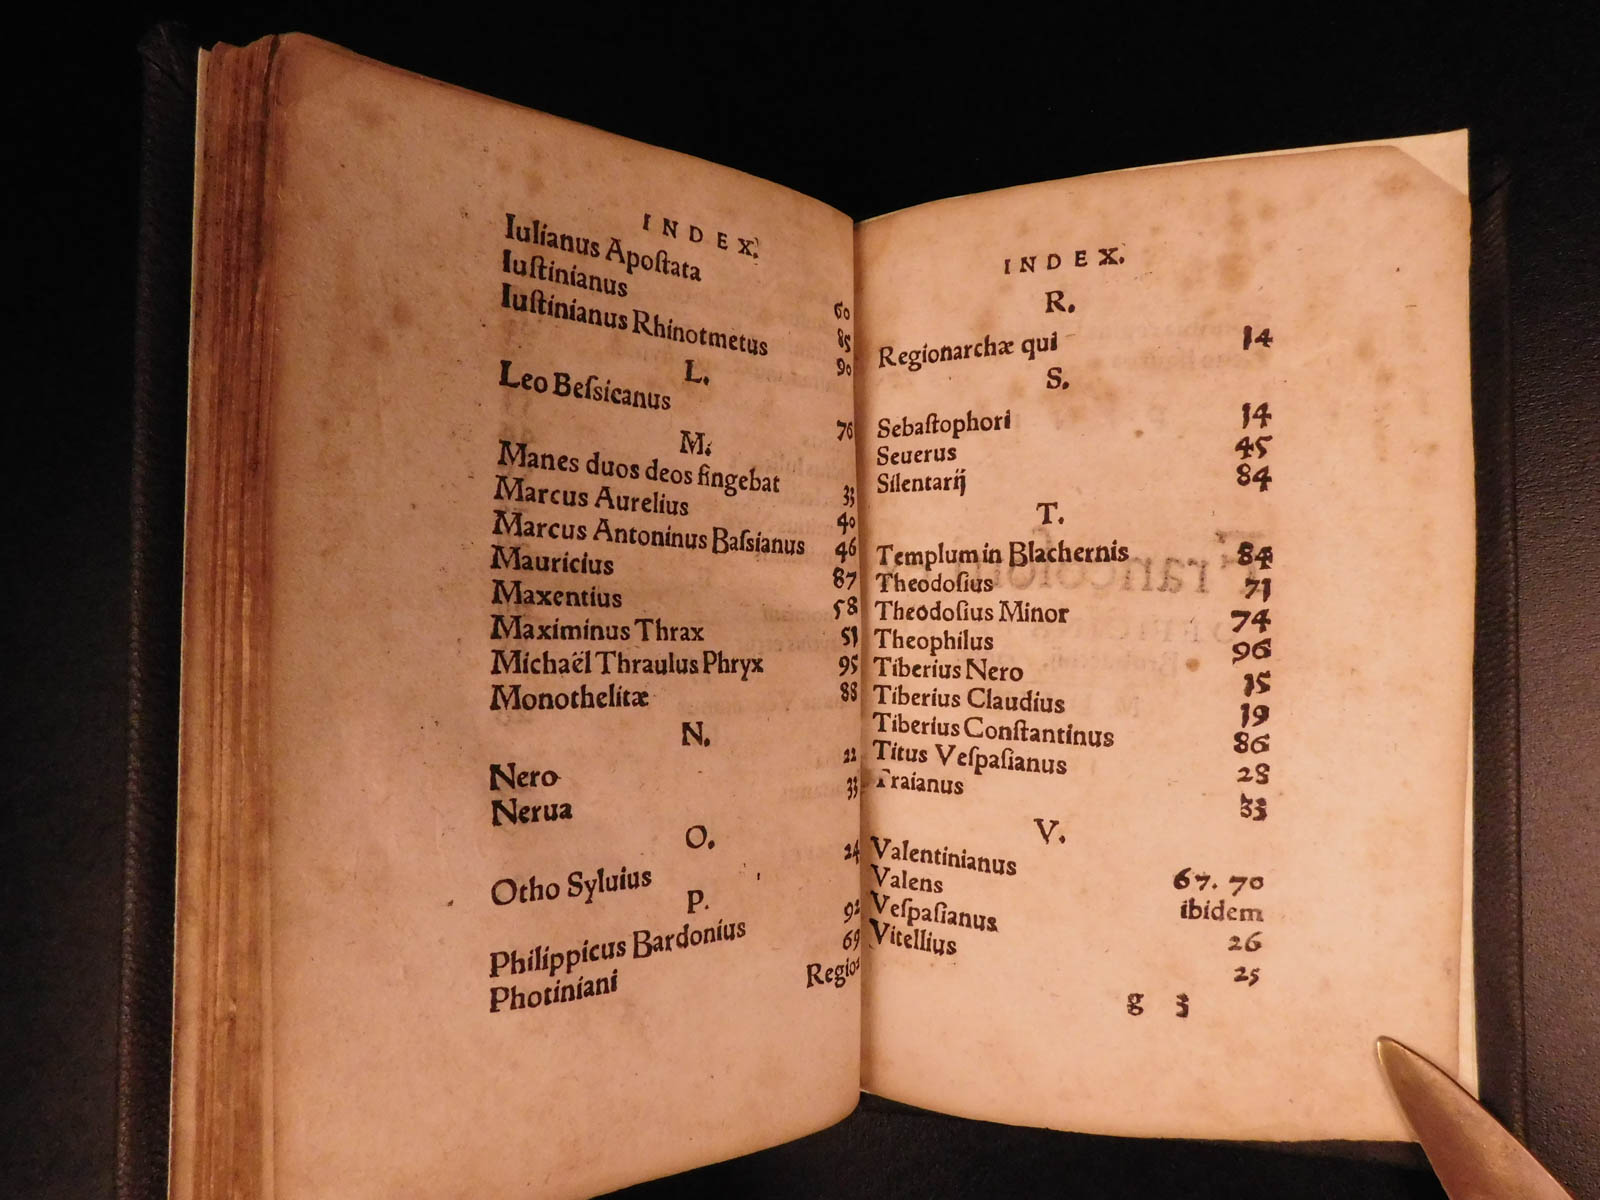 INDEX.
Iulianus Apoſtata 60
Iuſtinianus 85
Iuſtinianus Rhinotmetus 90
L.
Leo Beſsicanus 76
M.
Manes duos deos fingebat 33
Marcus Aurelius 40
Marcus Antoninus Baſsianus 46
Mauricius 87
Maxentius 58
Maximinus Thrax 51
Michaël Thraulus Phryx 95
Monothelitæ 88
N.
Nero 22
Nerua 33
O.
Otho Syluius 24
P.
Philippicus Bardonius 92
Photiniani 69
Regio
INDEX.
R.
Regionarchæ qui 14
S.
Sebaſtophori 14
Seuerus 45
Silentarij 84
T.
Templum in Blachernis 84
Theodoſius 71
Theodoſius Minor 74
Theophilus 96
Tiberius Nero 15
Tiberius Claudius 19
Tiberius Conſtantinus 86
Titus Veſpaſianus 28
Traianus 33
V.
Valentinianus 67. 70
Valens ibidem
Veſpaſianus 26
Vitellius 25
g 3